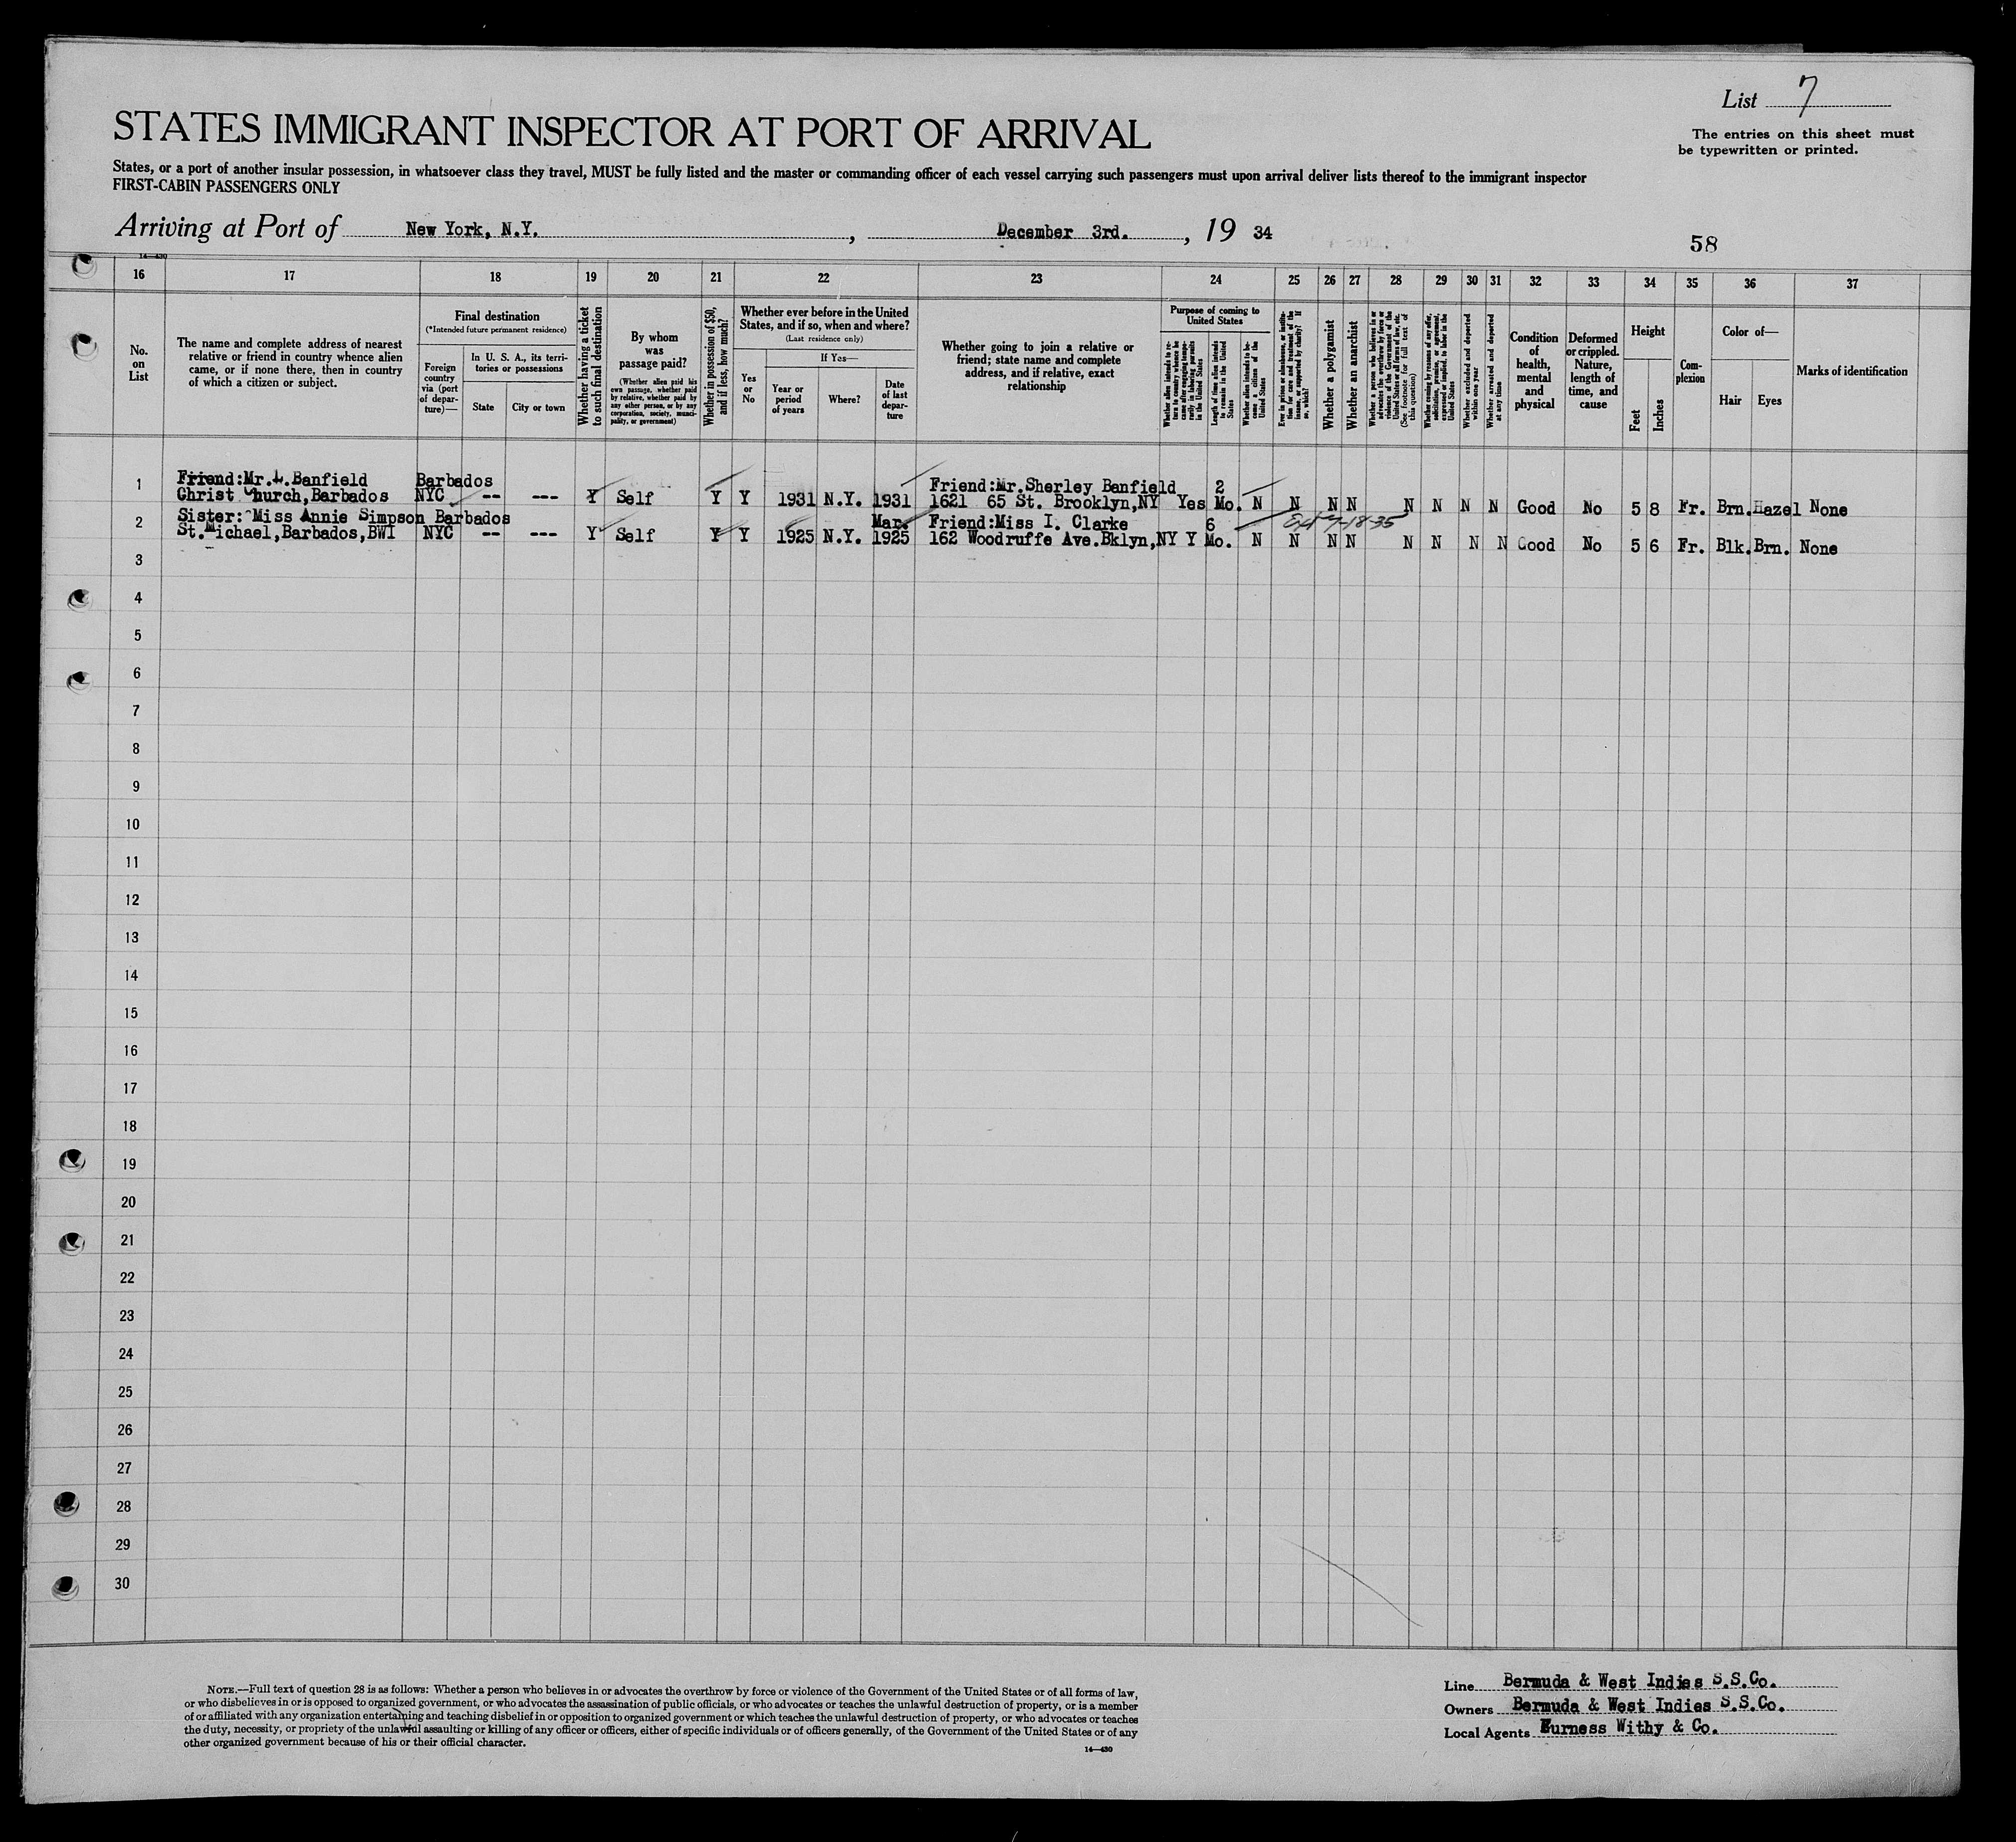 List 7
The entries on this sheet must
be typewritten or printed.
STATES IMMIGRANT INSPECTOR AT PORT OF ARRIVAL
States, or a port of another insular possession, in whatsoever class they travel, MUST be fully listed and the master or commanding officer of each vessel carrying such passengers must upon arrival deliver lists thereof to the immigrant inspector
FIRST-CABIN PASSENGERS ONLY
Arriving at Port of New York, N.Y. , December 3rd. , 19 34
58
14—430
16 17 18 19 20 21 22 23 24 25 26 27 28 29 30 31 32 33 34 35 36 37
No.
on
List
The name and complete address of nearest
relative or friend in country whence alien
came, or if none there, then in country
of which a citizen or subject.
Final destination
(*Intended future permanent residence)
Foreign
country
via (port
of depar-
ture)—
In U. S. A., its terri-
tories or possessions
State
City or town
Whether having a ticket
to such final destination
By whom
was
passage paid?
(Whether alien paid his
own passage, whether paid
by relative, whether paid by
any other person, or by any
corporation, society, munici-
pality, or government)
Whether in possession of $50,
and if less, how much?
Whether ever before in the United
States, and if so, when and where?
(Last residence only)
Yes
or
No
If Yes—
Year or
period
of years
Where?
Date
of last
depar-
ture
Whether going to join a relative or
friend; state name and complete
address, and if relative, exact
relationship
Purpose of coming to
United States
Whether alien intends to re-
turn to country whence he
came after engaging tempo-
rarily in laboring pursuits
in the United States
Length of time alien intends
to remain in the United
States
Whether alien intends to be-
come a citizen of the
United States
Ever in prison or almshouse, or institu-
tion for care and treatment of the
insane, or supported by charity? If
so, which?
Whether a polygamist
Whether an anarchist
Whether a person who believes in or
advocates the overthrow by force or
violence of the Government of the
United States or all forms of law, etc.
(See footnote for full text of
this question)
Whether coming by reason of any offer,
solicitation, promise, or agreement,
expressed or implied, to labor in the
United States
Whether excluded and deported
within one year
Whether arrested and deported
at any time
Condition
of
health,
mental
and
physical
Deformed
or crippled.
Nature,
length of
time, and
cause
Height
Feet
Inches
Com-
plexion
Color of—
Hair
Eyes
Marks of identification
Friend:Mr. L.Banfield Barbados Friend:Mr.Sherley Banfield 2
1 Christ Church,Barbados NYC -- --- Y Self Y Y 1931 N.Y. 1931 1621 65 St. Brooklyn,NY Yes Mo. N N N N N N N N Good No 5 8 Fr. Brn. Hazel None
Sister: Miss Annie Simpson Barbados Mar. Friend:Miss I. Clarke 6
2 St.Michael,Barbados,BWI NYC -- --- Y Self Y Y 1925 N.Y. 1925 162 Woodruffe Ave.Bklyn,NY Y Mo. N N N N N N N N Good No 5 6 Fr. Blk. Brn. None
3
4
5
6
7
8
9
10
11
12
13
14
15
16
17
18
19
20
21
22
23
24
25
26
27
28
29
30
NOTE.—Full text of question 28 is as follows: Whether a person who believes in or advocates the overthrow by force or violence of the Government of the United States or of all forms of law,
or who disbelieves in or is opposed to organized government, or who advocates the assassination of public officials, or who advocates or teaches the unlawful destruction of property, or is a member
of or affiliated with any organization entertaining and teaching disbelief in or opposition to organized government or which teaches the unlawful destruction of property, or who advocates or teaches
the duty, necessity, or propriety of the unlawful assaulting or killing of any officer or officers, either of specific individuals or of officers generally, of the Government of the United States or of any
other organized government because of his or their official character.
14—430
Line Bermuda & West Indies S.S.Co.
Owners Bermuda & West Indies S.S.Co.
Local Agents Furness Withy & Co.